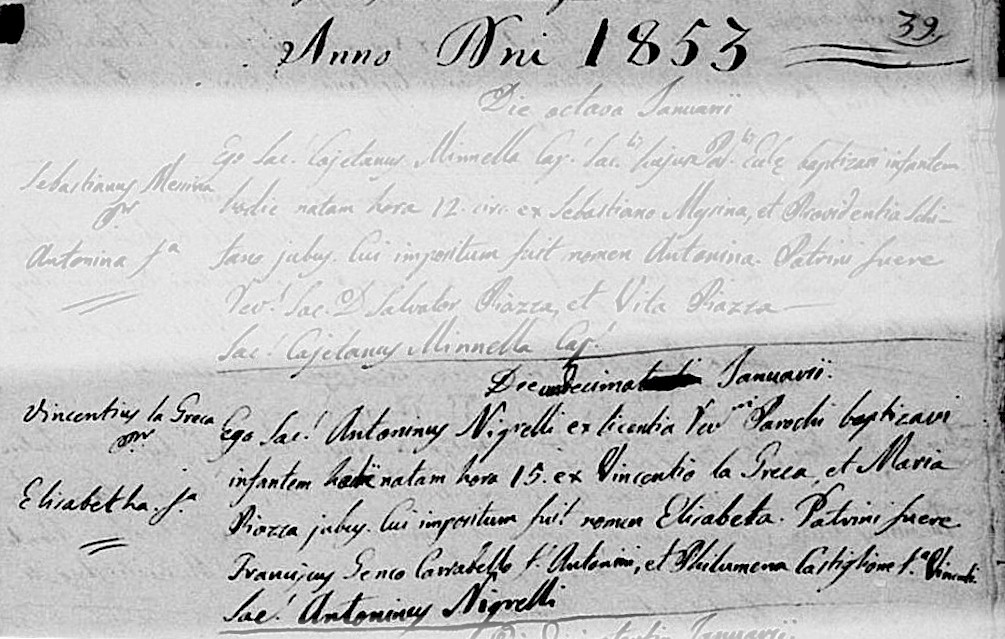 39.
Anno Dni 1853
Die octava Januarii
Sebastianus Messina
pr
Antonina fa
Ego Sac.' Cajetanus Minnella Cap.' Sac.li hujus Par.lis Eccle baptizavi infantem
hodie natam hora 12. circ. ex Sebastiano Messina, et Providentia Schi-
fano jubus. Cui impositum fuit nomen Antonina. Patrini fuere
Rev.' Sac. D. Salvator Piazza, et Vita Piazza
Sac.' Cajetanus Minnella Cap.'
Die undecima Januarii.
Vincentius la Greca
pr
Elisabetha fa
Ego Sac.' Antoninus Nigrelli ex licentia Revmi Parochi baptizavi
infantem hodie natam hora 15. ex Vincentio la Greca, et Maria
Piazza jubus. Cui impositum fuit nomen Elisabeta. Patrini fuere
Franciscus Genco Carrabello f.' Antonini, et Philumena Castiglione f.a Vincenti
Sac.' Antoninus Nigrelli
Januarii